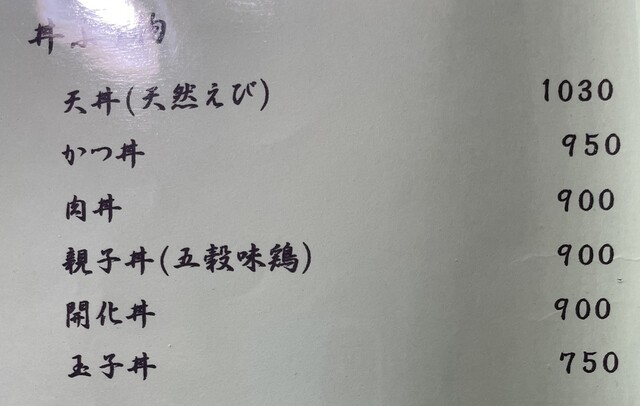 丼ぶり物
天丼(天然えび) 1030
かつ丼 950
肉丼 900
親子丼(五穀味鶏) 900
開化丼 900
玉子丼 750